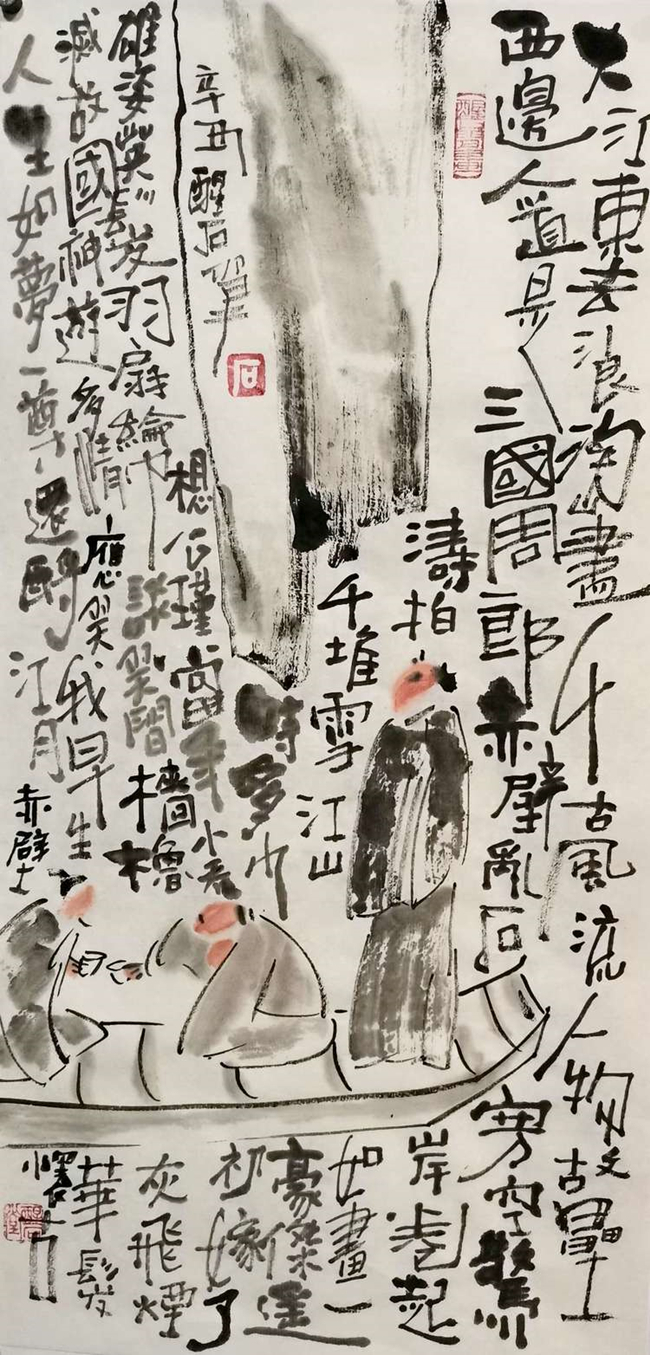 大江東去浪淘盡千古風流人物故壘
西邊人道是三國周郎赤壁亂石穿空驚
濤拍岸卷起
千堆雪江山如畫一
時多少豪傑遙
想公瑾當年小喬初嫁了
雄姿英發羽扇綸巾談笑間檣櫓灰飛煙
滅故國神遊多情應笑我早生華髮
人生如夢一尊還酹江月赤壁懷古
辛丑醒石筆
石